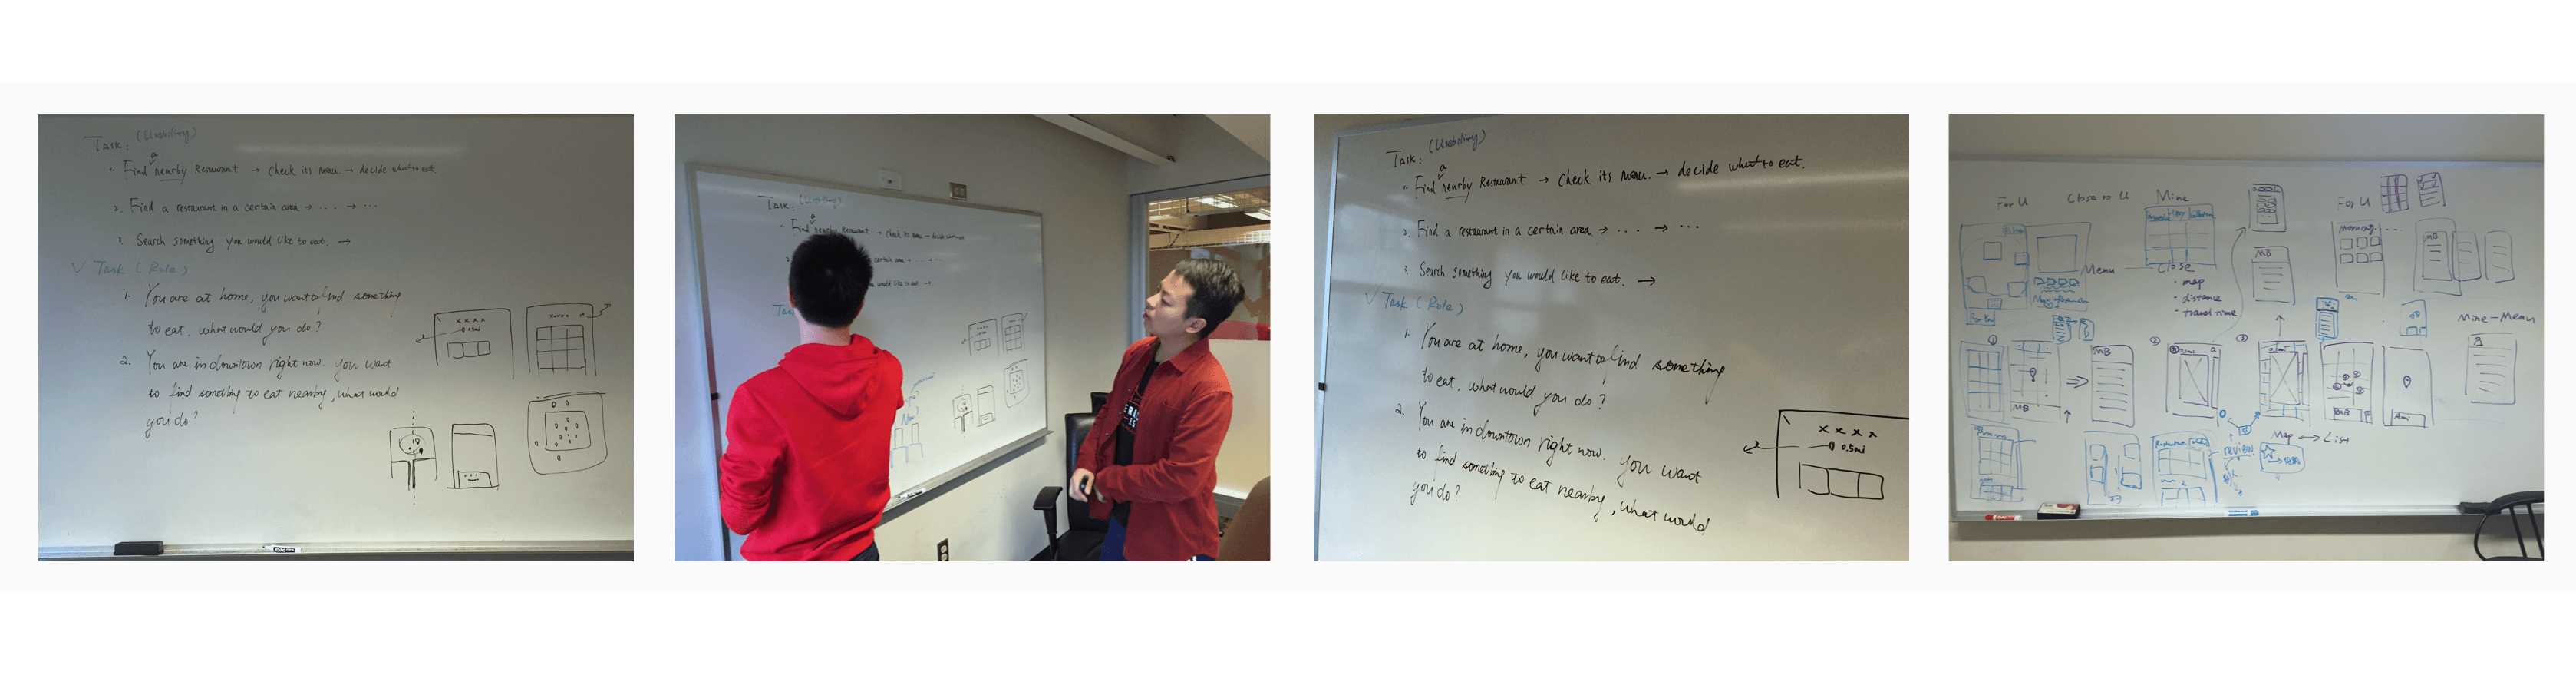 Task: (Usability)
1. Find a nearby Restaurant → check its menu. → decide what to eat.
2. Find a restaurant in a certain area → ... → ...
3. Search something you would like to eat. →
✓ Task (Role)
1. You are at home, you want to find something
to eat. what would you do?
2. You are in downtown right now. you want
to find something to eat nearby, what would
you do?
x x x x
0.5mi
Task: (Usability)
1. Find a nearby Restaurant → check its menu → decide what to eat
certain area → ... → ...
would like to eat. →
Task: (Usability)
1. Find a nearby Restaurant → check its menu. → decide what to eat.
2. Find a restaurant in a certain area → ... → ...
3. Search something you would like to eat. →
✓ Task (Role)
1. You are at home, you want to find something
to eat. what would you do?
2. You are in downtown right now. you want
to find something to eat nearby, what would
you do?
x x x x
0.5mi
For U
Close to U
Mine
For U
Menu
Close
- map
- distance
- travel time
MB
MB
Mine-Menu
MB
MB
Map ↔ List
review